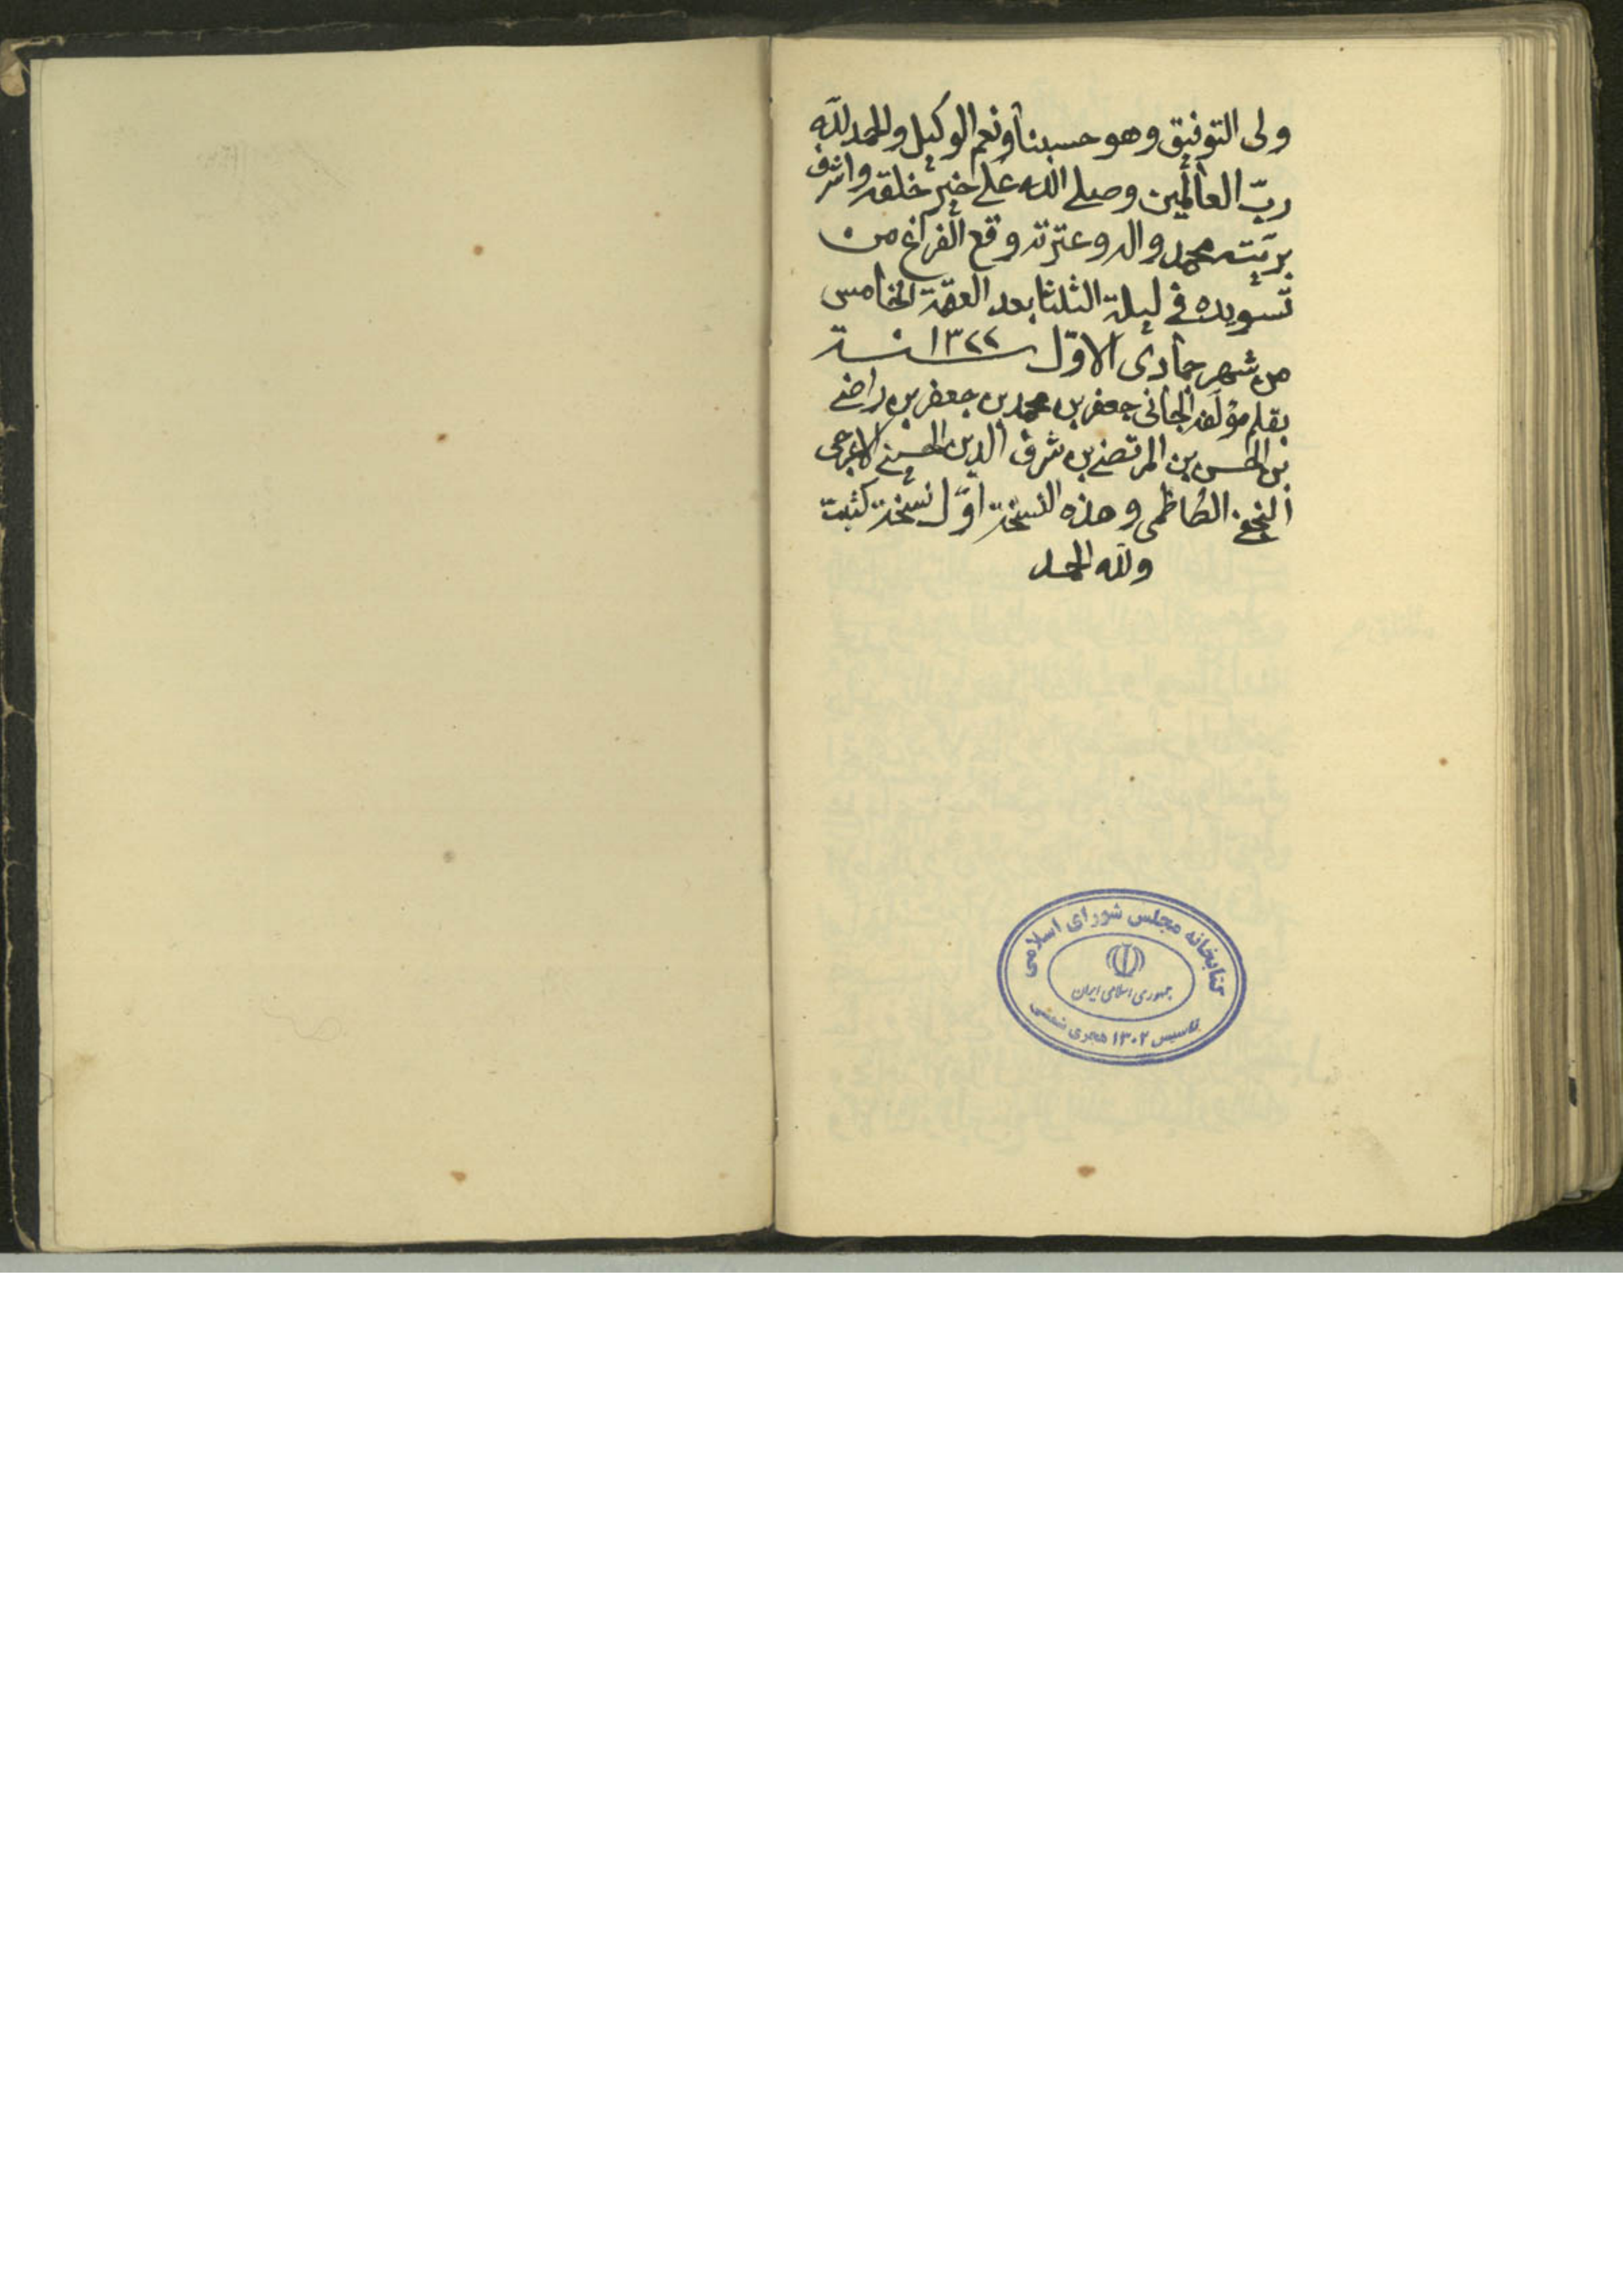 ولى التوفيق وهو حسبنا ونعم الوكيل والحمد لله
ربّ العالمين وصلى الله على خير خلقه واشرف
بريّته محمد واله وعترته وقع الفراغ من
تسويده في ليلة الثلثا بعد العتمة الخامس
من شهر جمادى الاوّل سنة ١٣٢٢
بقلم مؤلفه الجاني جعفر بن محمد بن جعفر بن راضي
بن الحسن بن المرتضى بن شرف الدين الحسيني الاعرجي
النجفي الكاظمي وهذه النسخة اوّل نسخة كتبت
ولله الحمد
كتابخانه مجلس شورای اسلامی
جمهوری اسلامی ایران
تاسیس ۱۳۰۲ هجری شمسی